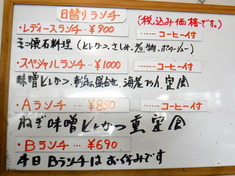 日替りランチ (税込み価格です。)
・レディースランチ ¥900 ……コーヒー付
ミニ懐石料理(ヒレかつ、さしみ、煮物、
・スペシャルランチ ¥1000 ……コーヒー付
味噌ヒレかつ、海老フライ、定食
・Aランチ … ¥850 ……コーヒー付
ねぎ味噌ヒレかつ重定食
・Bランチ … ¥690
本日Bランチはお休みです